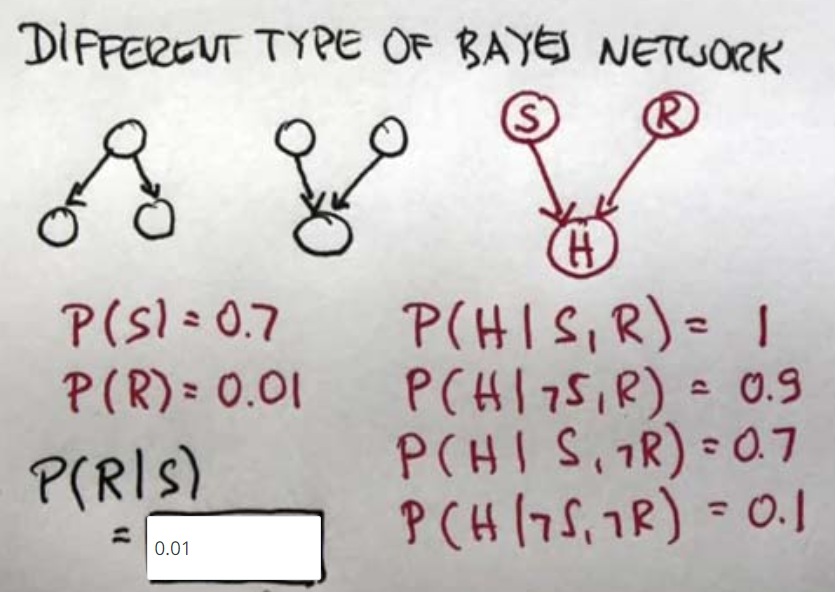 DIFFERENT TYPE OF BAYES NETWORK
S R
H
P(S) = 0.7
P(R) = 0.01
P(H | S, R) = 1
P(H | ¬S, R) = 0.9
P(H | S, ¬R) = 0.7
P(H | ¬S, ¬R) = 0.1
P(R|S)
= 0.01